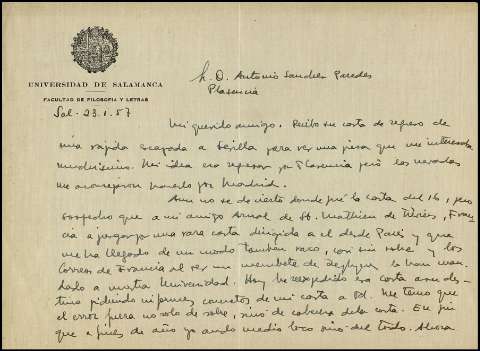 UNIVERSIDAD DE SALAMANCA
FACULTAD DE FILOSOFIA Y LETRAS
Sal - 23.1.57
Sr. D. Antonio Sanchez Paredes
Plasencia
Mi querido amigo. Recibo su carta de regreso de
una rapida escapada a Sevilla para ver una pieza que me interesaba
muchisimo. Mi idea era regresar por Plasencia pero las nevadas
me aconsejaron hacerlo por Madrid.
Aun no se de cierto donde fué la carta del 16, pero
sospecho que a mi amigo de St. Mathieu de Fran-
cia a juzgar por una rara carta dirigida a el desde Paris y que
me ha llegado de un modo tambien raro, casi sin sobre y los
Correos de Francia al ver un membrete de la han man-
dado a nuestra Universidad. Hoy he reexpedido esa carta a su des-
tino pidiendo informes concretos de mi carta a Vd. Me temo que
el error fuera no solo de sobre, sino de cabecera de la carta. En fin
que a fines de año yo ando medio loco sino del todo. Ahora